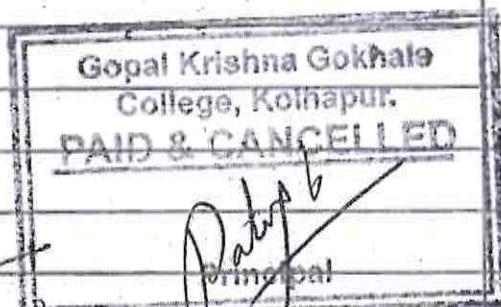 Gopal Krishna Gokhale
College, Kolhapur.
PAID & CANCELLED
Principal